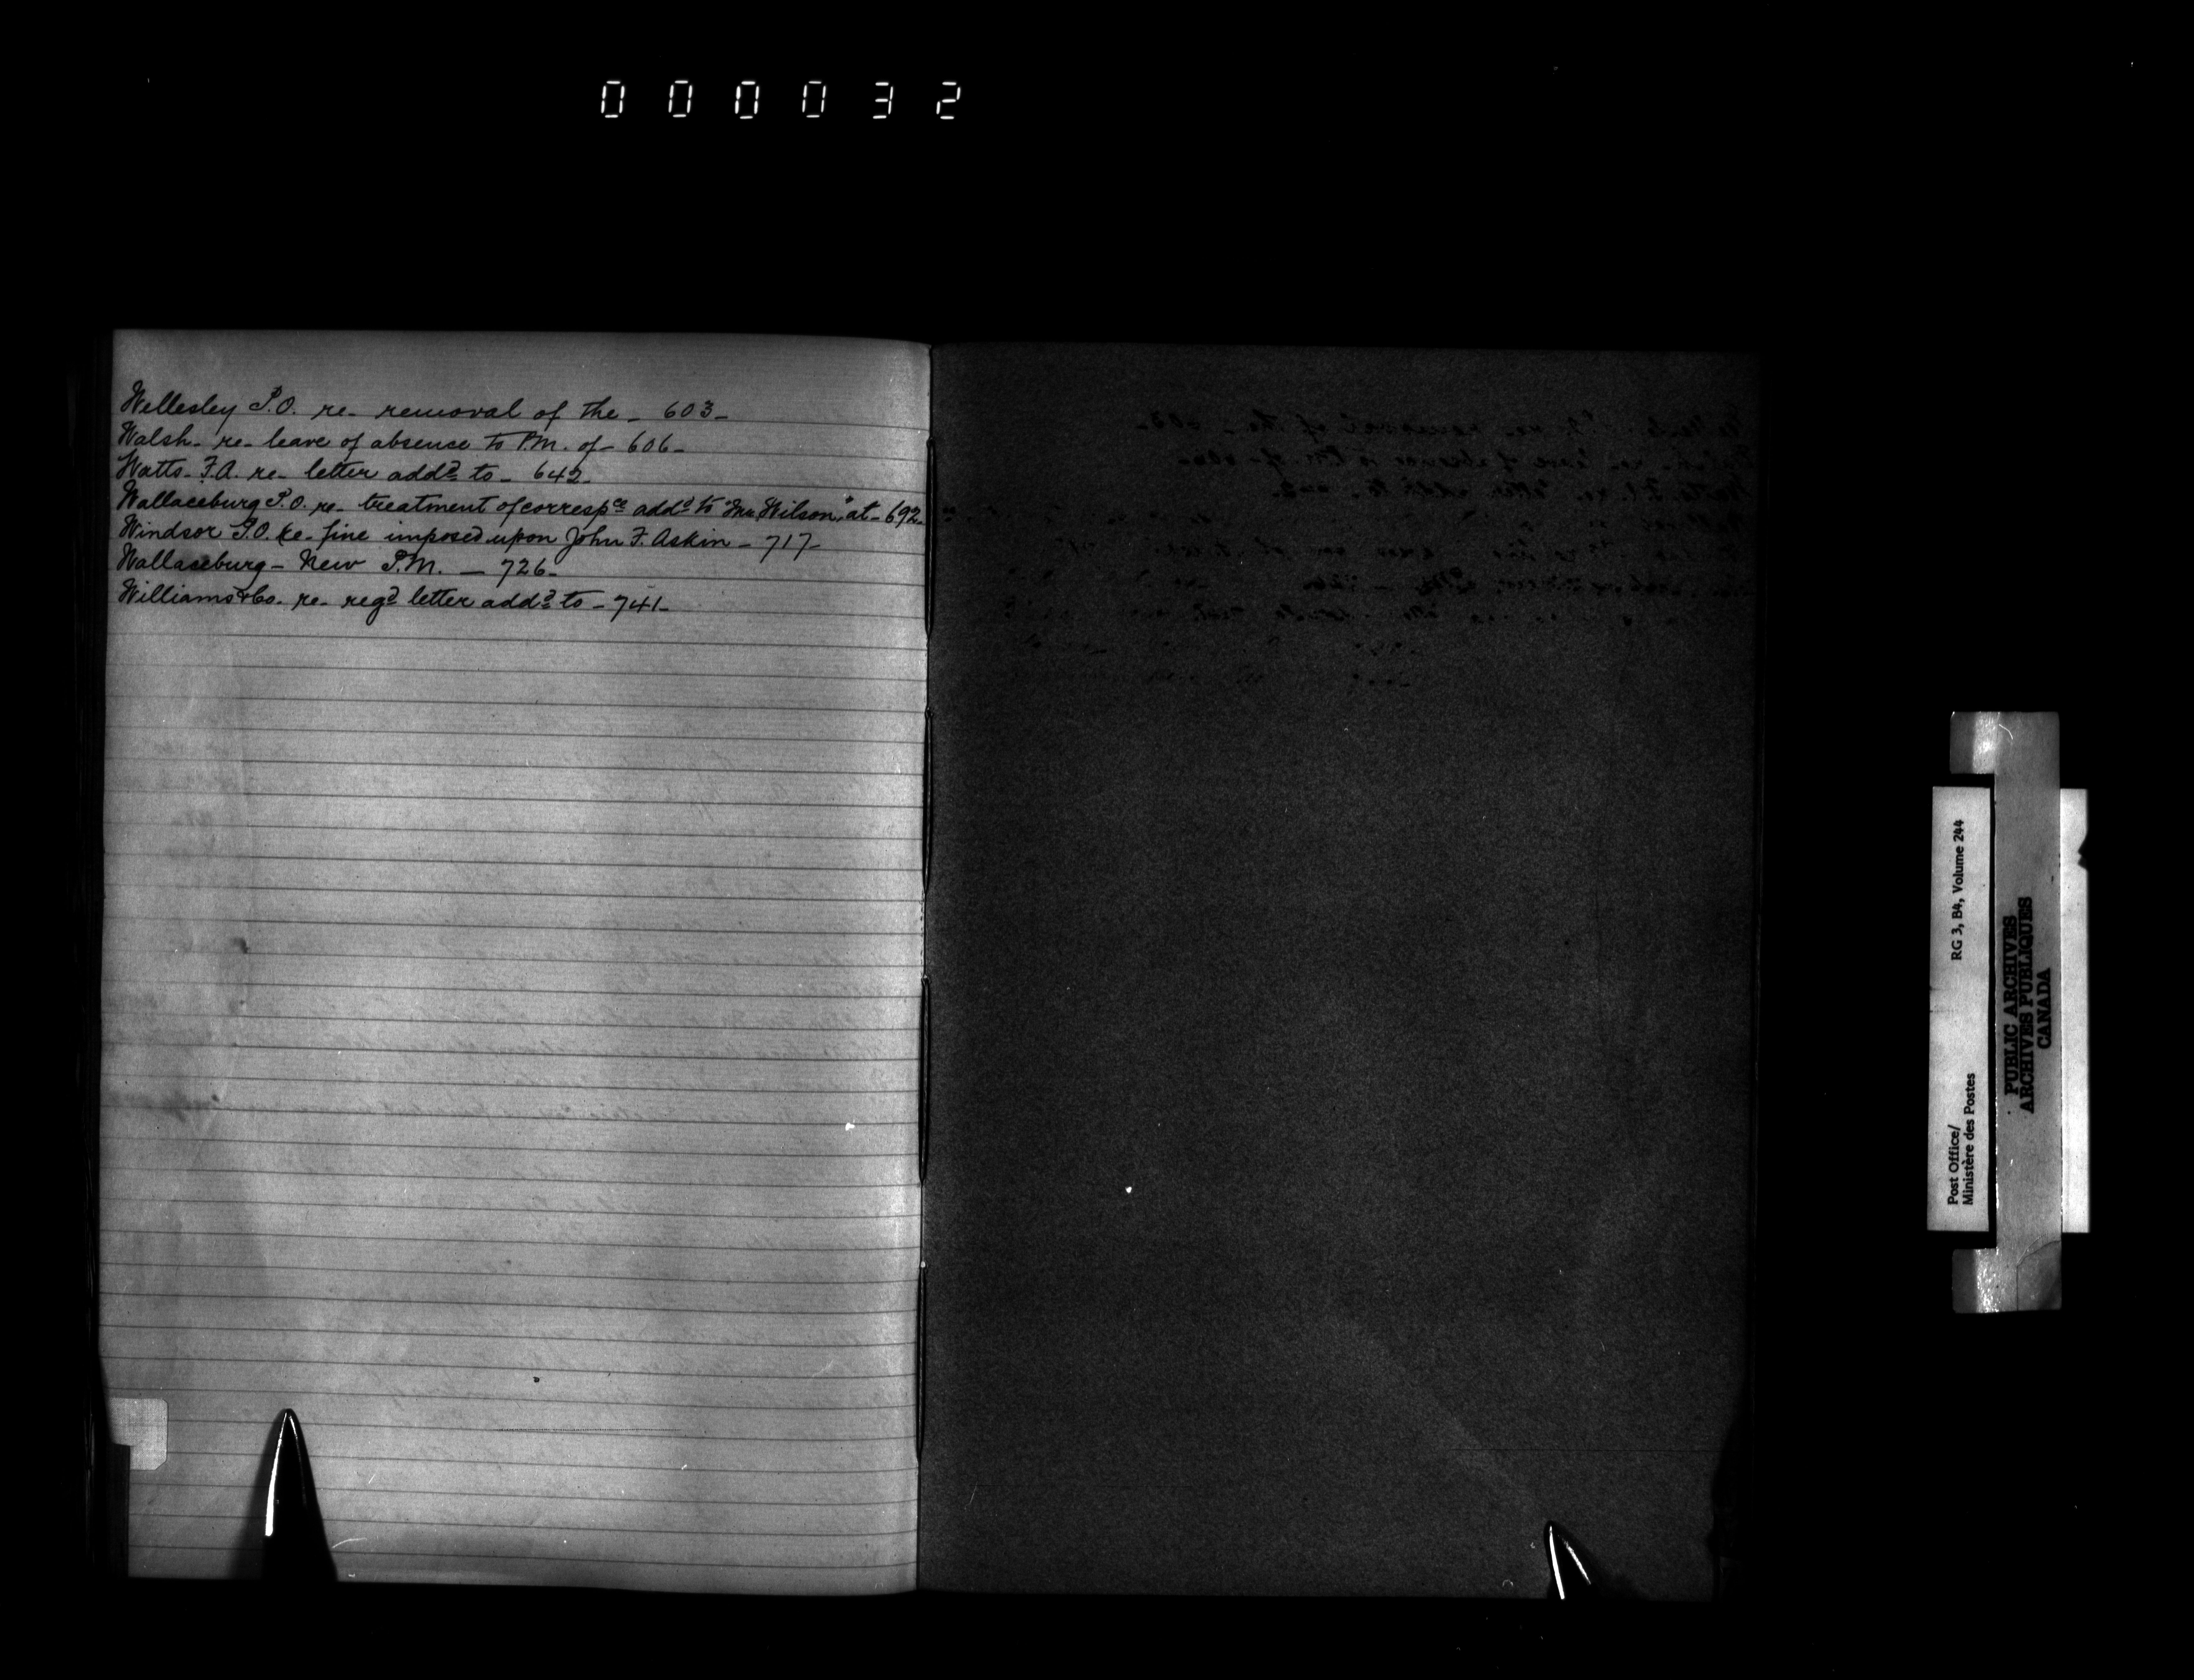 000032
Wellesley P.O. re- removal of the - 603-
Walsh- re- leave of absence to P.M. of- 606-
Watts- F.A. re- letter addd to - 642-
Wallaceburg P.O. re- treatment of correspce addd to "Mr. Wilson," at - 692-
Windsor P.O. re- fine imposed upon John F. Askin - 717-
Wallaceburg - New P.M. - 726-
Williams & Co. re- regd letter addd to - 741-
Post Office/ RG 3, B4, Volume 244
Ministère des Postes
PUBLIC ARCHIVES
ARCHIVES PUBLIQUES
CANADA